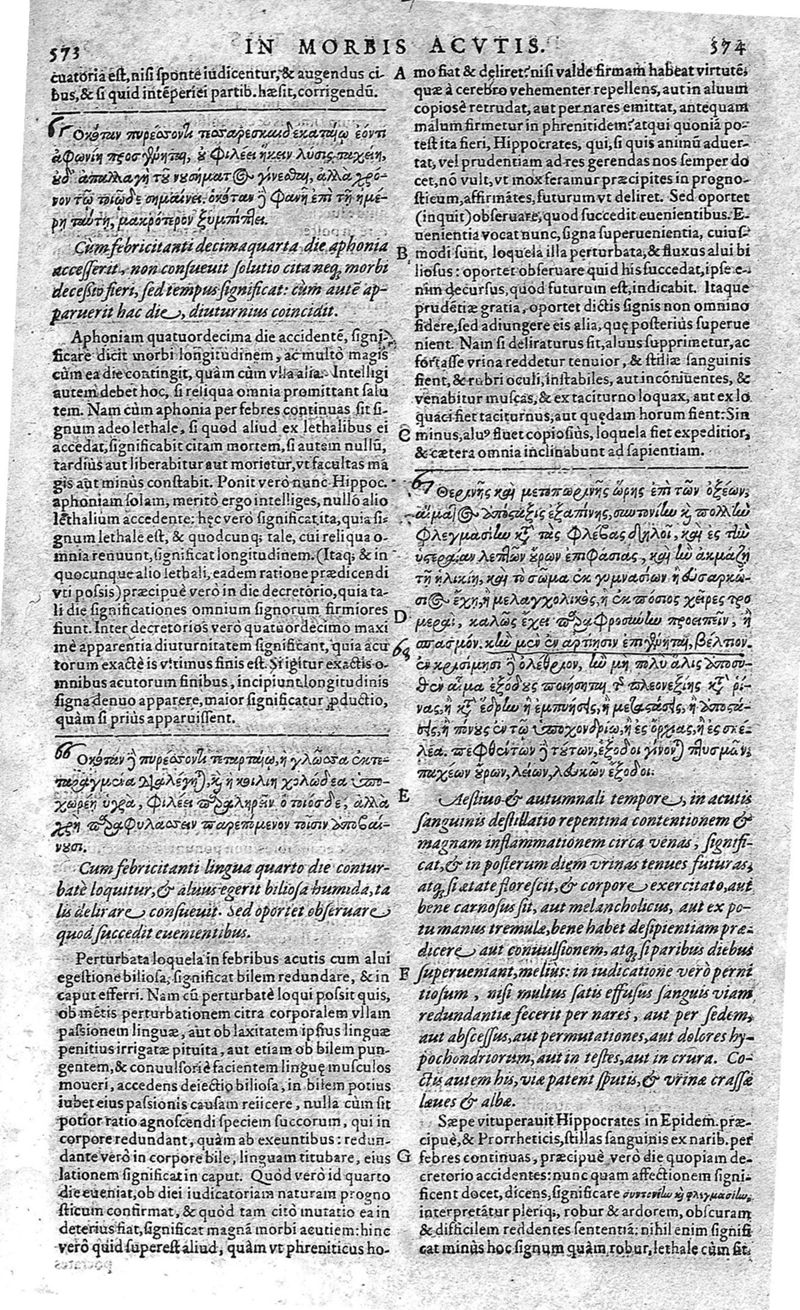 573 IN MORBIS ACVTIS. 574
cuatoria est, nisi sponte iudicentur, & augendus ci-
bus, & si quid intẽperiei partib. hæsit, corrigendũ.
65 Ὁκόταν πυρέσσοντι τεσσαρεσκαιδεκαταίῳ ἐόντι
ἀφωνίη προσγένηται, οὐ φιλέει ἥκειν λύσις ταχείη,
οὐδ' ἀπαλλαγὴ τοῦ νοσήματος γίνεσθαι, ἀλλὰ χρό-
νον τῷ τοιῷδε σημαίνει. ὁκόταν ἢ φανῇ ἐπὶ τῇ ἡμέ-
ρῃ ταύτῃ, μακρότερον ξυμπίπτει.
Cùm febricitanti decimaquarta die aphonia
accesserit, non consueuit solutio cita neq; morbi
decessio fieri, sed tempus significat: cùm autẽ ap-
paruerit hac die, diuturnius coincidit.
Aphoniam quatuordecima die accidentẽ, signi-
ficare dicit morbi longitudinem, ac multò magis
cùm ea die contingit, quàm cùm vlla alia. Intelligi
autem debet hoc, si reliqua omnia promittant salu
tem. Nam cùm aphonia per febres continuas sit si-
gnum adeo lethale, si quod aliud ex lethalibus ei
accedat, significabit citam mortem, si autem nullũ,
tardius aut liberabitur aut morietur, vt facultas ma
gis aut minus constabit. Ponit verò nunc Hippoc.
aphoniam solam, meritò ergo intelliges, nullo alio
lethalium accedente: hęc verò significat, ita, quia si-
gnum lethale est, & quodcunq; tale, cui reliqua o-
mnia renuunt, significat longitudinem. (Itaq; & in
quocunque alio lethali, eadem ratione prædicendi
vti possis) præcipuè verò in die decretorio, quia ta-
li die significationes omnium signorum firmiores
fiunt. Inter decretorios verò quatuordecimo maxi
mè apparentia diuturnitatem significant, quia acu
torum exactè is vltimus finis est. Si igitur exactis o-
mnibus acutorum finibus, incipiunt longitudinis
signa denuo apparere, maior significatur ꝓductio,
quàm si priùs apparuissent.
66 Ὁκόταν ἢ πυρέσσοντι τεταρταίῳ, ἡ γλῶσσα ἐκτε-
ταραγμένα διαλέγηται, καὶ ἡ κοιλίη χολώδεα ὑπο-
χωρέῃ ὑγρὰ, φιλέει παραληρεῖν ὁ τοιόσδε, ἀλλὰ
χρὴ παραφυλάσσειν παρεπόμενον τοῖσιν ἀποβαί-
νουσι.
Cum febricitanti lingua quarto die contur-
batè loquitur, & aluus egerit biliosa humida, ta
lis delirare consueuit. Sed oportet obseruare
quod succedit euenientibus.
Perturbata loquela in febribus acutis cum alui
egestione biliosa, significat bilem redundare, & in
caput efferri. Nam cũ perturbatè loqui possit quis,
ob mẽtis perturbationem citra corporalem vllam
passionem linguæ, aut ob laxitatem ipsius linguæ
penitius irrigatæ pituita, aut etiam ob bilem pun-
gentem, & conuulsoriè facientem linguę musculos
moueri, accedens deiectio biliosa, in bilem potius
iubet eius passionis causam reiicere, nulla cùm sit
potior ratio agnoscendi speciem succorum, qui in
corpore redundant, quàm ab exeuntibus: redun-
dante verò in corpore bile, linguam titubare, eius
lationem significat in caput. Quòd verò id quarto
die eueniat, ob diei iudicatoriam naturam progno
sticum confirmat, & quòd tam citò mutatio ea in
deterius fiat, significat magnã morbi acutiem: hinc
verò quid superest aliud, quàm vt phreniticus ho-
pocrates
A mo fiat & deliret? nisi valde firmam habeat virtutẽ,
quæ à cerebro vehementer repellens, aut in aluum
copiosè retrudat, aut per nares emittat, antequam
malum firmetur in phrenitidem? atqui quoniã po-
test ita fieri, Hippocrates, qui, si quis animũ aduer-
tat, vel prudentiam ad res gerendas nos semper do
cet, nõ vult, vt mox feramur præcipites in progno-
sticum, affirmãtes, futurum vt deliret. Sed oportet
(inquit) obseruare, quod succedit euenientibus. E-
uenientia vocat nunc, signa superuenientia, cuius-
B modi sunt, loquela illa perturbata, & fluxus alui bi
liosus: oportet obseruare quid his succedat, ipse e-
nim decursus, quod futurum est, indicabit. Itaque
prudẽtiæ gratia, oportet dictis signis non omnino
fidere, sed adiungere eis alia, quę posterius superue
nient. Nam si deliraturus sit, aluus supprimetur, ac
fortasse vrina reddetur tenuior, & stillæ sanguinis
fient, & rubri oculi, instabiles, aut incõniuentes, &
venabitur muscas, & ex taciturno loquax, aut ex lo
quaci fiet taciturnus, aut quędam horum fient: Sin
C minus, aluꝰ fluet copiosiùs, loquela fiet expeditior,
& cætera omnia inclinabunt ad sapientiam.
67 Θερινῆς καὶ μετοπωρινῆς ὥρης ἐπὶ τῶν ὀξέων,
αἵματος ἀπόσταξις ἐξαπίνης, συντονίην καὶ πολλὴν
φλεγμασίην κατὰ τὰς φλέβας δηλοῖ, καὶ ἐς τὴν
ὑστεραίαν λεπτῶν οὔρων ἐπιφασίας, καὶ ἢν ἀκμάζῃ
τῇ ἡλικίῃ, καὶ τὸ σῶμα ἐκ γυμνασίων ἢ εὐσαρκω-
σιος ἔχῃ, ἢ μελαγχολικὸς, ἢ ἐκ πόσιος χεῖρες τρο
D μεραὶ, καλῶς ἔχει παραφροσύνην προειπεῖν, ἢ
σπασμόν. κἢν μὲν ἐν ἀρτίῃσιν ἐπιγένηται, βέλτιον.
68 ἐν κρισίμῃσι ἢ ὀλέθριον, ἢν μὴ πολὺ ἅλις ἀποσυ-
θὲν αἷμα ἐξόδους ποιήσηται τῆς πλεονεξίης κατὰ ῥί-
νας, ἢ κατὰ ἕδρην ἢ ἐμπνήσῃς, ἢ μεταστάσῃς, ἢ ἀποστά-
σῃς, ἢ πόνους ἐν τῷ ὑποχονδρίῳ, ἢ ἐς ὄρχιας, ἢ ἐς σκέ-
λεα. πεφθέντων ἢ τούτων, ἔξοδοι γίνονται πτυσμάτων
παχέων οὔρων, λείων, λευκῶν ἔξοδοι.
E Aestiuo & autumnali tempore, in acutis
sanguinis destillatio repentina contentionem &
magnam inflammationem circa venas, signifi-
cat, & in posterum diem vrinas tenues futuras,
atq; si ætate florescit, & corpore exercitato, aut
bene carnosus sit, aut melancholicus, aut ex po-
tu manus tremulæ, bene habet desipientiam præ-
dicere aut conuulsionem, atq; si paribus diebus
F superueniant, meliùs: in iudicatione verò perni
tiosum, nisi multus satis effusus sanguis viam
redundantiæ fecerit per nares, aut per sedem,
aut abscessus, aut permutationes, aut dolores hy-
pochondriorum, aut in testes, aut in crura. Co-
ctis autem his, viæ patent sputis, & vrinæ crassæ
læues & albæ.
Sæpe vituperauit Hippocrates in Epidem. præ-
cipuè, & Prorrheticis, stillas sanguinis ex narib. per
G febres continuas, præcipuè verò die quopiam de-
cretorio accidentes: nunc quam affectionem signi-
ficent docet, dicens, significare συντονίην καὶ φλεγμασίην,
interpretãtur pleriq; robur & ardorem, obscuram
& difficilem reddentes sententiã: nihil enim signifi
cat minùs hoc signum quàm robur, lethale cùm sit,